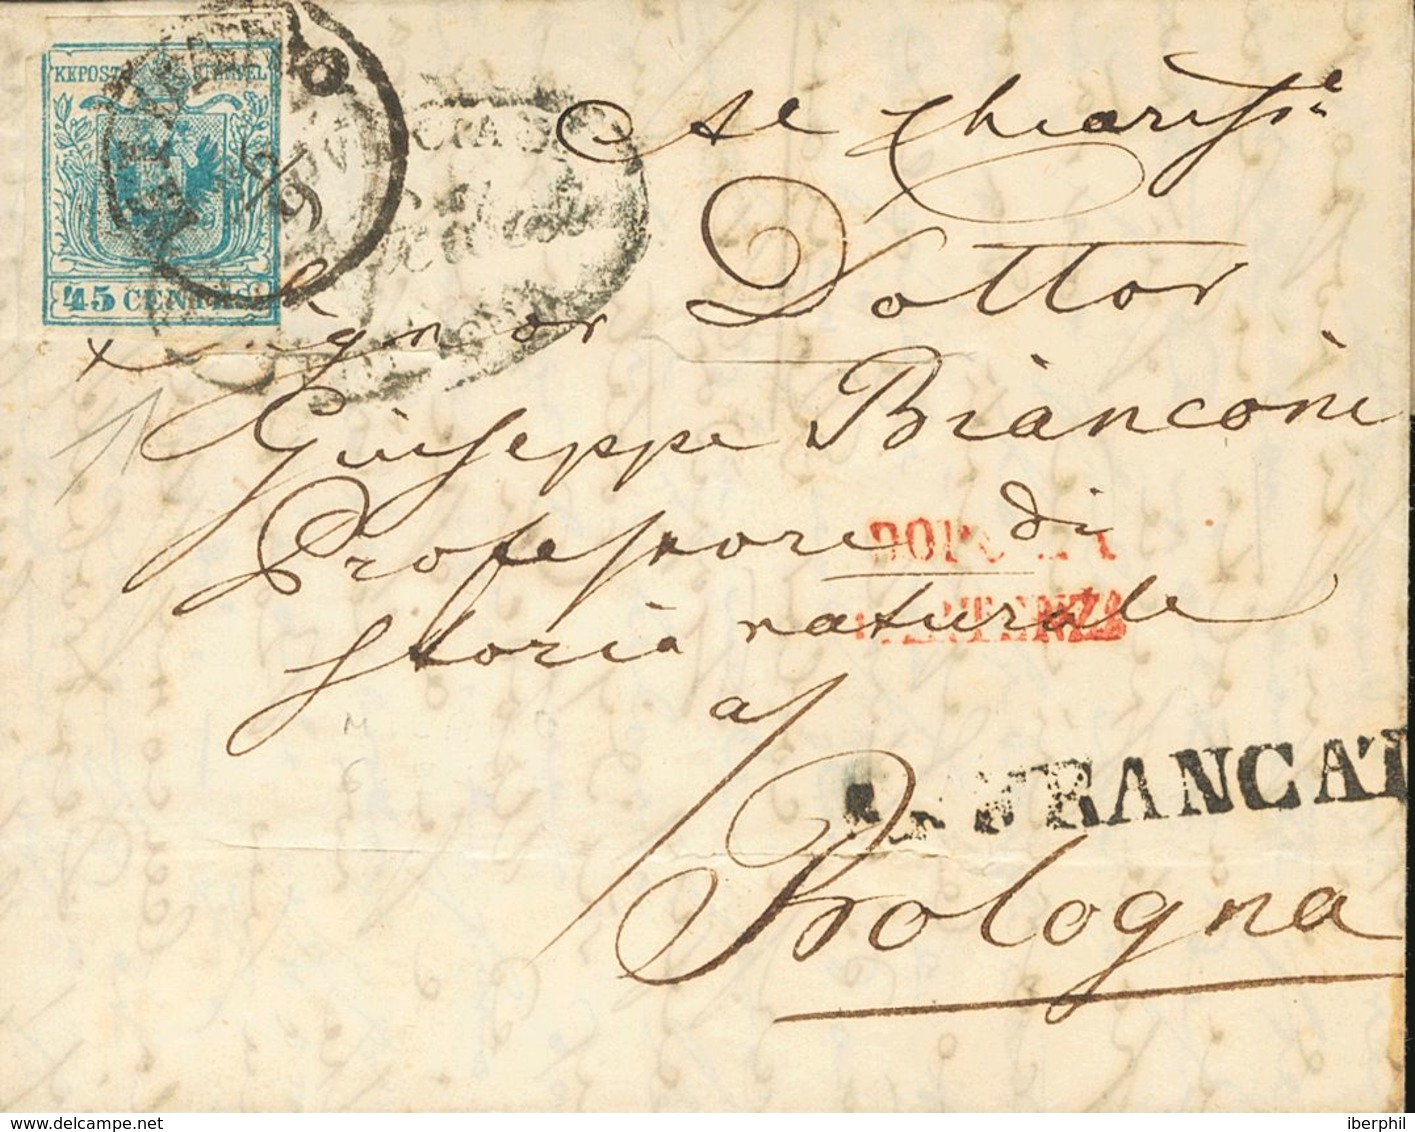 KKPOST STEMPEL
45 CENTES
Al Chiariss.e
Signor Dottor
Giuseppe Bianconi
Professore di
Storia naturale
a
Bologna
DOPO LA
PARTENZA
FRANCA
delcampe.net
iberphil